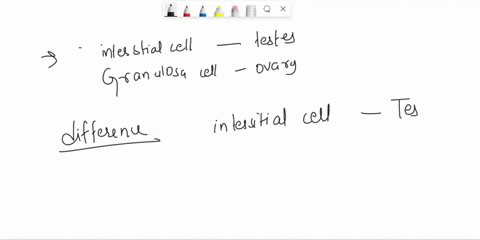 → interstial cell — testes
Granulosa cell — ovary
difference intersitial cell — Tes